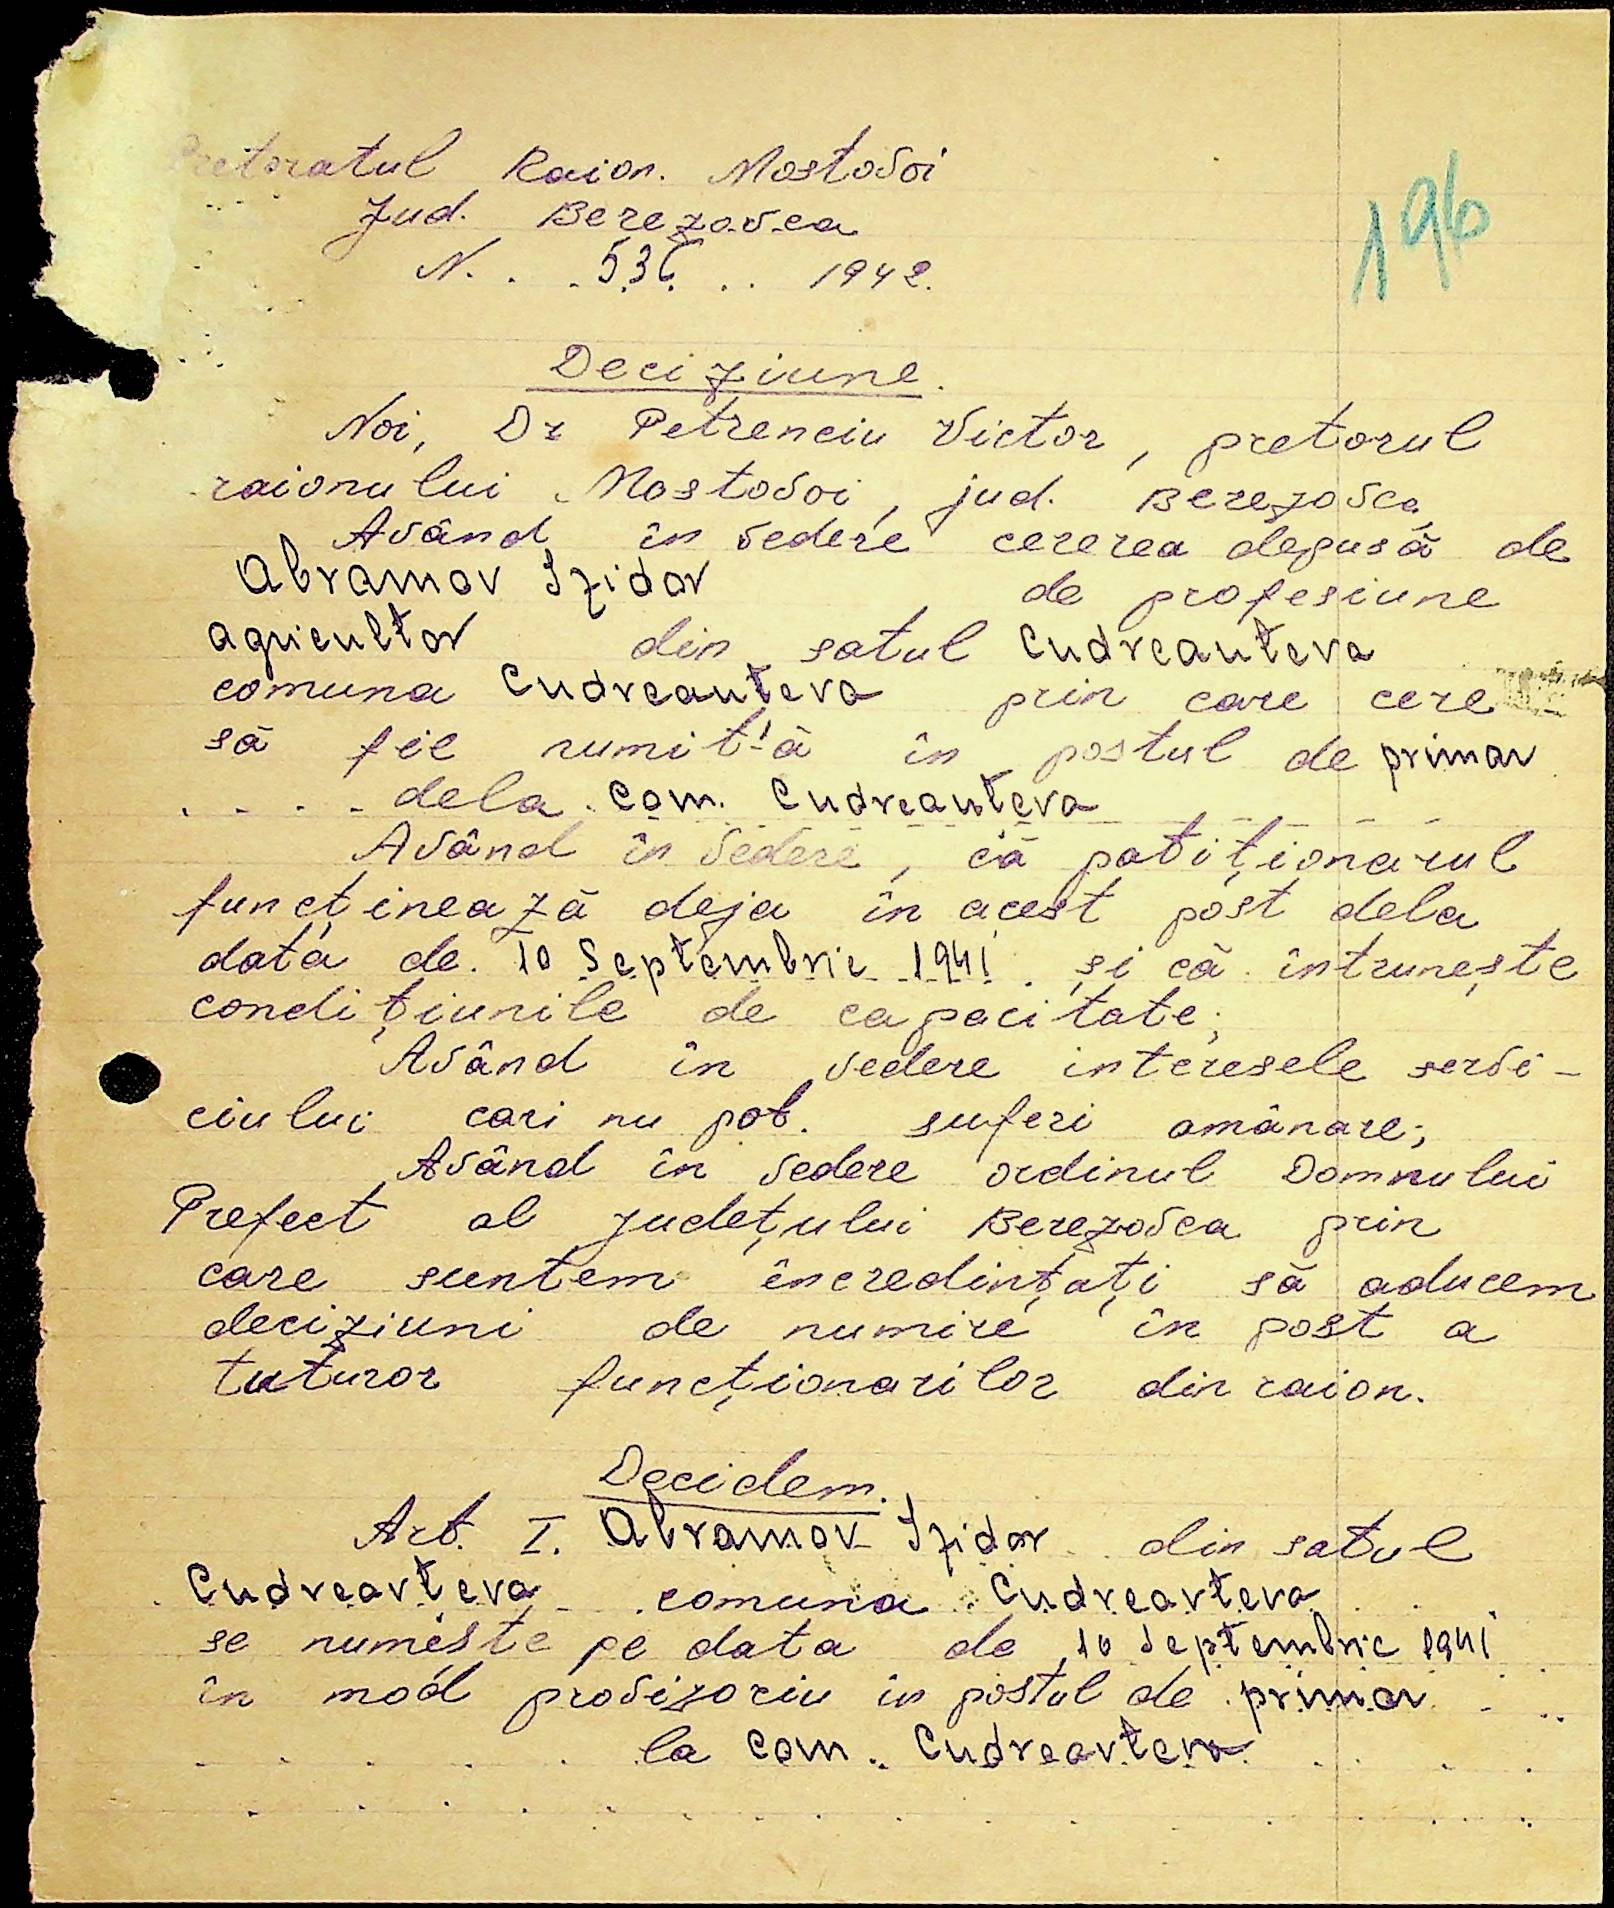 Pretoratul Raion. Mostovoi
Jud. Berezovca
N. . . 536 . . 1942.
196
Deciziune.
Noi, Dr Petrenciu Victor, pretorul
raionului Mostovoi, jud. Berezovca
Având în vedere cererea depusă de
Abramov Izidor de profesiune
agricultor din satul Cudreauteva
comuna Cudreauteva prin care cere
să fie numit-ă în postul de primar
. . . . dela . com. Cudreauteva
Având în vedere, că patiționarul
funcținează deja în acest post dela
data de. 10 Septembrie 1941 . și că întrunește
condițiunile de capacitate;
Având în vedere interesele servi-
ciului cari nu pot. suferi amânare;
Având în vedere ordinul Domnului
Prefect al județului Berezovca prin
care suntem încredințați să aducem
deciziuni de numire în post a
tuturor funcționarilor din raion.
Decidem.
Art. I. Abramov Izidor din satul
Cudreavteva comuna Cudreavteva
se numește pe data de 10 Septembrie 1941
în mod provizoriu in postul de primar
la com. Cudreavteva